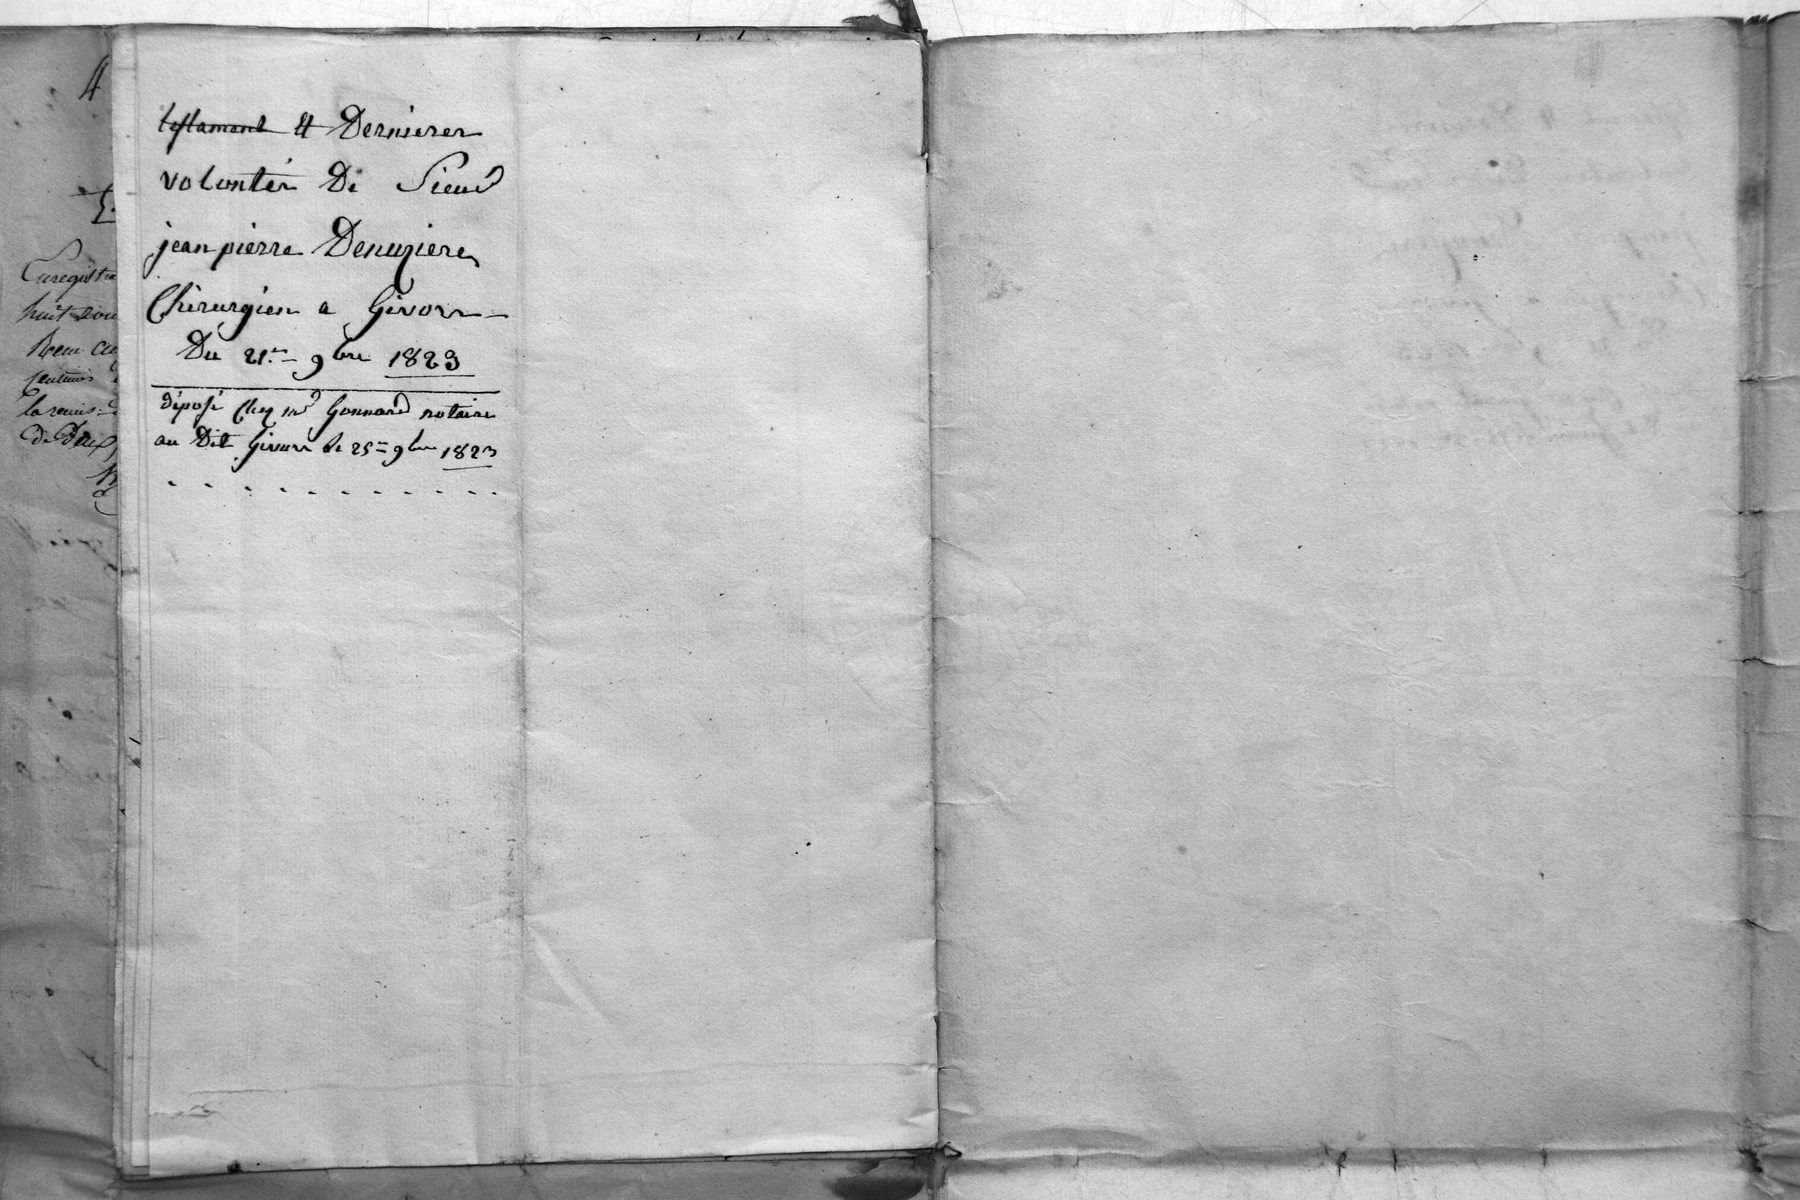 testament et Dernieres
volontés De Sieur
jean pierre Denuziere
Chirurgien a Givors
Du 21.e 9bre 1823
déposé Chez Mr Gonnard notaire
au Dit Givors le 25 9bre 1823
Enregistré
huit
Reçu
Centimes
De Deux